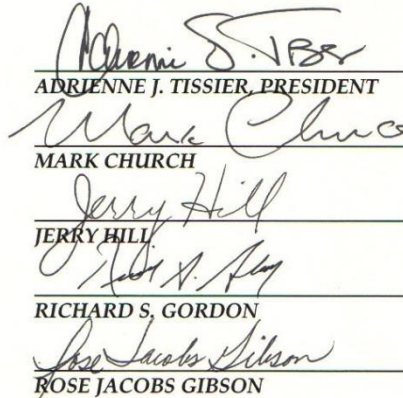 Adrienne J. Tissier
ADRIENNE J. TISSIER, PRESIDENT
Mark Church
MARK CHURCH
Jerry Hill
JERRY HILL
RICHARD S. GORDON
Rose Jacobs Gibson
ROSE JACOBS GIBSON